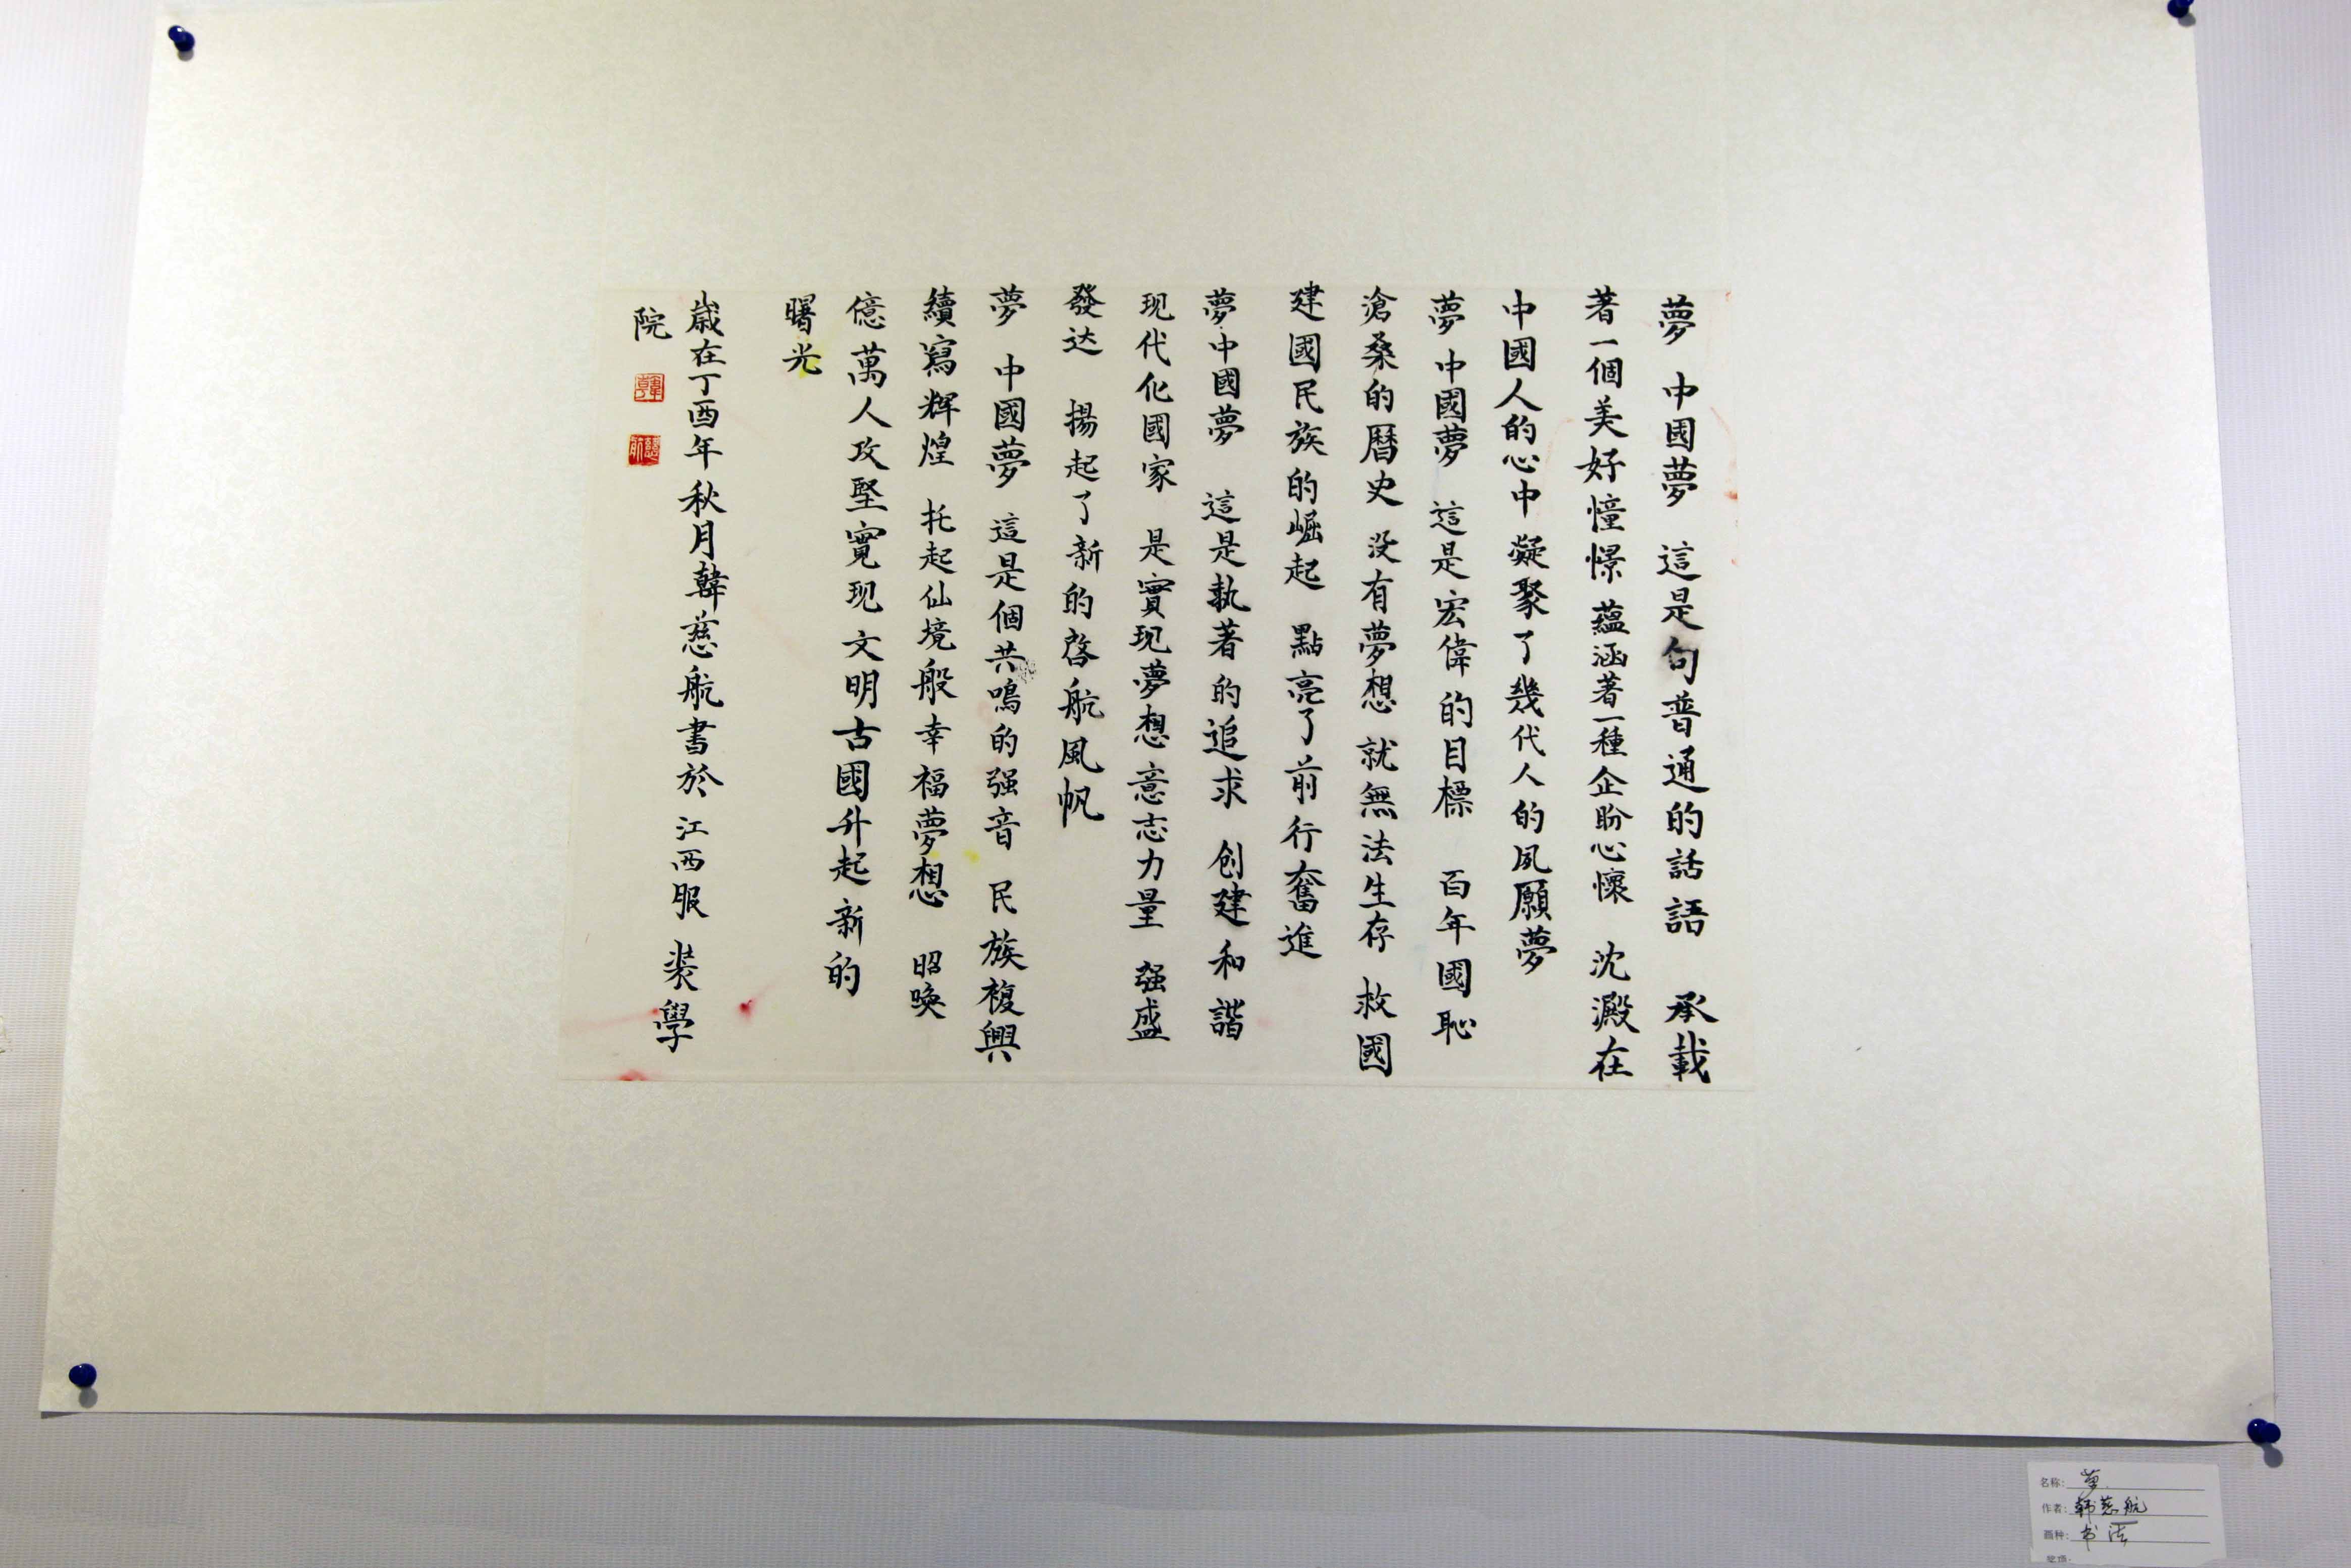 夢 中國夢 這是句普通的話語 承載
著一個美好憧憬 蘊涵著一種企盼心懷 沈澱在
中國人的心中 凝聚了幾代人的夙願夢
夢 中國夢 這是宏偉的目標 百年國恥
滄桑的曆史 没有夢想 就無法生存 救國
建國民族的崛起 點亮了前行奮進
夢 中國夢 這是執著的追求 创建和諧
现代化國家 是實现夢想意志力量 强盛
發达 揚起了新的啓航風帆
夢 中國夢 這是個共鳴的强音 民族複興
續寫辉煌 托起仙境般幸福夢想 昭唤
億萬人攻堅實现文明古國升起新的
曙光
歲在丁酉年秋月韓慈航書於江西服裝學
院
韓
慈航
名称：夢
作者：韩慈航
画种：书法